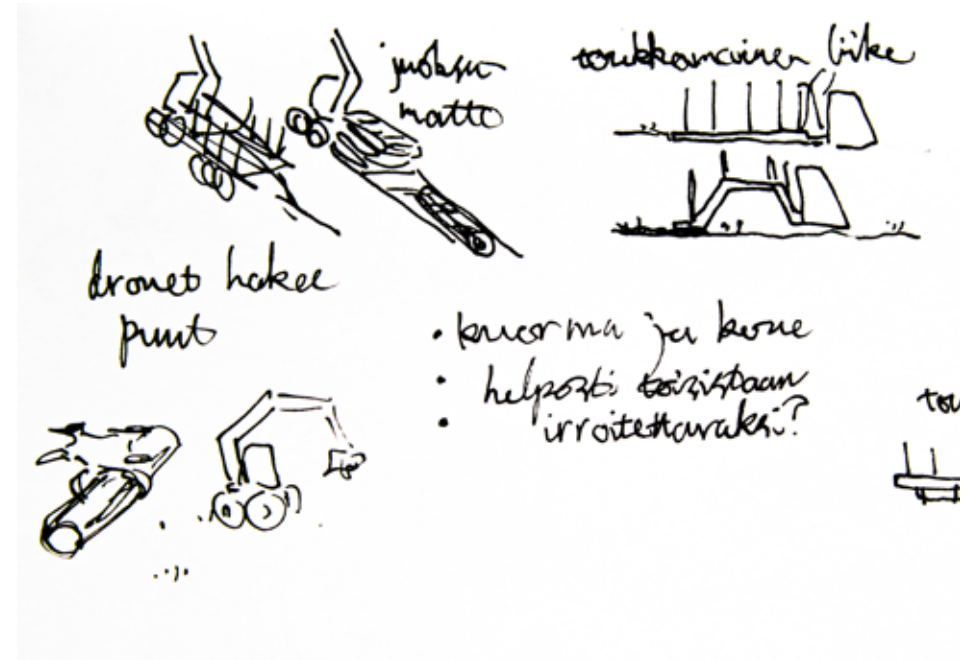 juoksu-
matto
toukkamainen liike
dronet hakee
puut
• kuorma ja kone
• helposti toisistaan
• irroitettavaksi?
tou